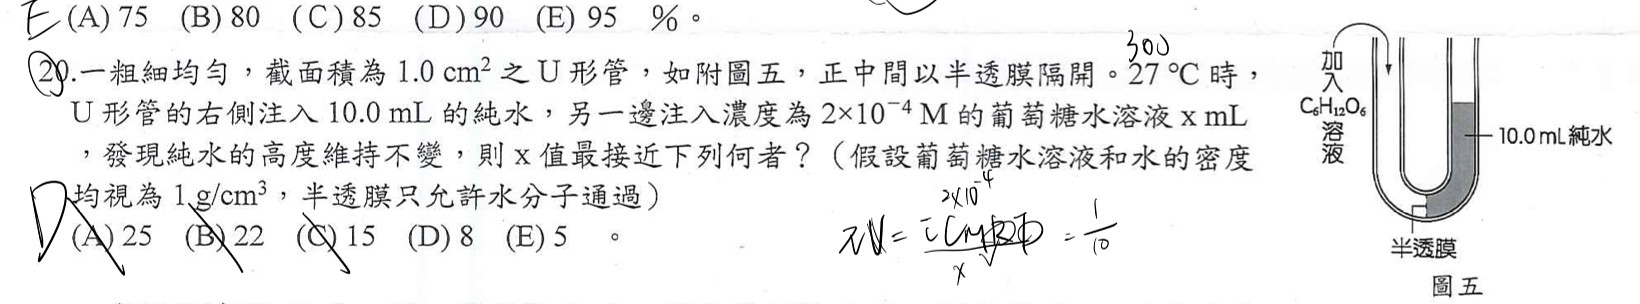 E (A) 75 (B) 80 (C) 85 (D) 90 (E) 95 %。
300
20.一粗細均勻，截面積為 1.0 cm² 之 U 形管，如附圖五，正中間以半透膜隔開。27 ℃ 時，
U 形管的右側注入 10.0 mL 的純水，另一邊注入濃度為 2×10⁻⁴ M 的葡萄糖水溶液 x mL
，發現純水的高度維持不變，則 x 值最接近下列何者？（假設葡萄糖水溶液和水的密度
均視為 1 g/cm³，半透膜只允許水分子通過）
D (A) 25 (B) 22 (C) 15 (D) 8 (E) 5 。
2×10⁻⁴
= 1/10
x
加入
C₆H₁₂O₆
溶液
10.0 mL 純水
半透膜
圖五